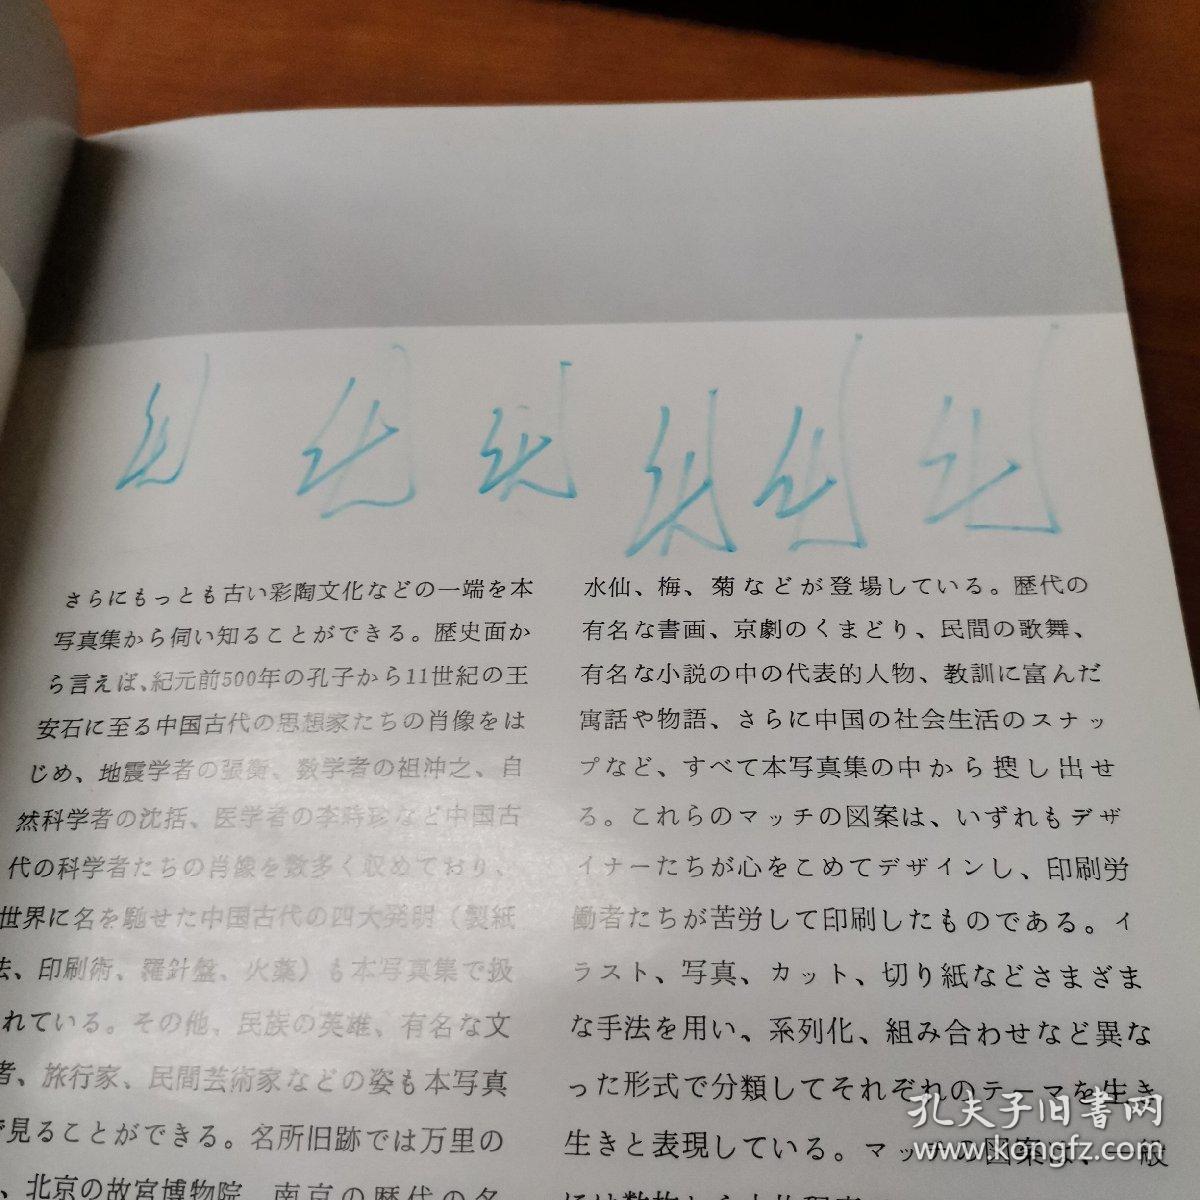 さらにもっとも古い彩陶文化などの一端を本
写真集から伺い知ることができる。歴史面か
ら言えば、紀元前500年の孔子から11世紀の王
安石に至る中国古代の思想家たちの肖像をは
じめ、地震学者の張衡、数学者の祖沖之、自
然科学者の沈括、医学者の李時珍など中国古
代の科学者たちの肖像を数多く収めており、
世界に名を馳せた中国古代の四大発明（製紙
法、印刷術、羅針盤、火薬）も本写真集で扱
れている。その他、民族の英雄、有名な文
者、旅行家、民間芸術家などの姿も本写真
で見ることができる。名所旧跡では万里の
、北京の故宮博物院、南京の歴代の名
水仙、梅、菊などが登場している。歴代の
有名な書画、京劇のくまどり、民間の歌舞、
有名な小説の中の代表的人物、教訓に富んだ
寓話や物語、さらに中国の社会生活のスナッ
プなど、すべて本写真集の中から捜し出せ
る。これらのマッチの図案は、いずれもデザ
イナーたちが心をこめてデザインし、印刷労
働者たちが苦労して印刷したものである。イ
ラスト、写真、カット、切り紙などさまざま
な手法を用い、系列化、組み合わせなど異な
った形式で分類してそれぞれのテーマを生き
生きと表現している。マッチの図案は、一般
孔夫子旧书网
www.kongfz.com